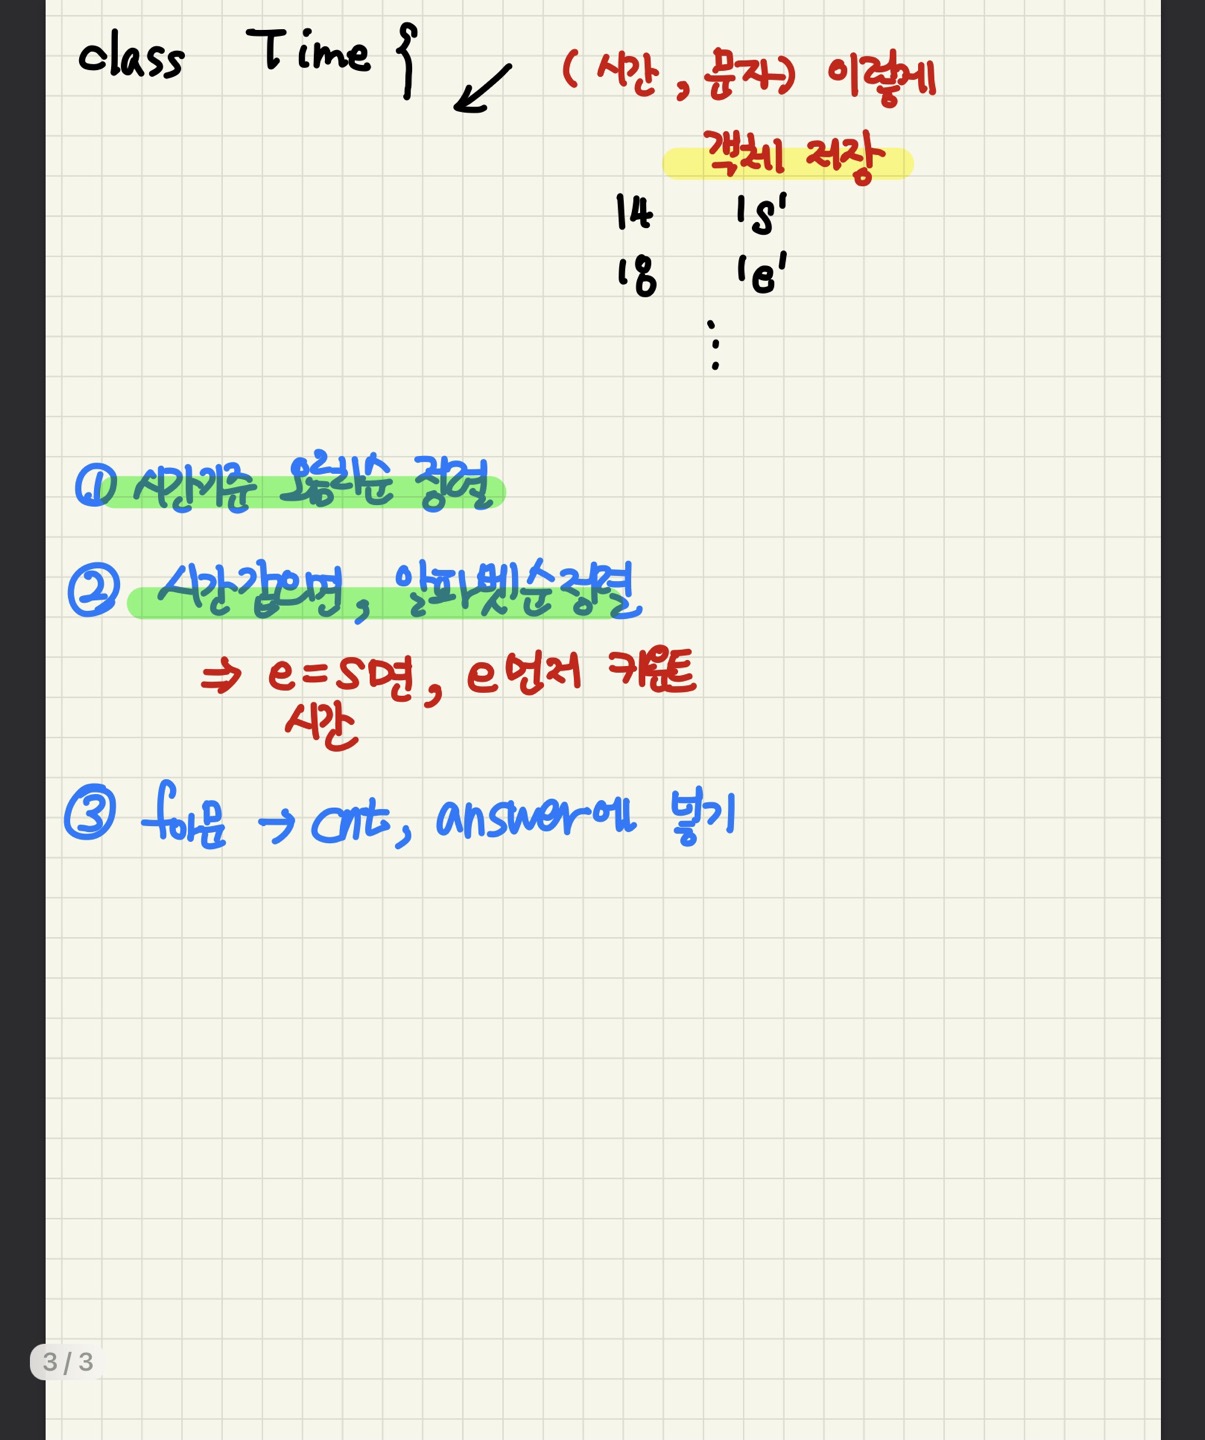 class Time {
(시간, 문자) 이렇게
객체 저장
14 's'
18 'e'
⋮
① 시간기준 오름차순 정렬
② 시간같으면, 알파벳순정렬
⇒ e=s면, e먼저 카운트
시간
③ for문 → cnt, answer에 넣기
3/3